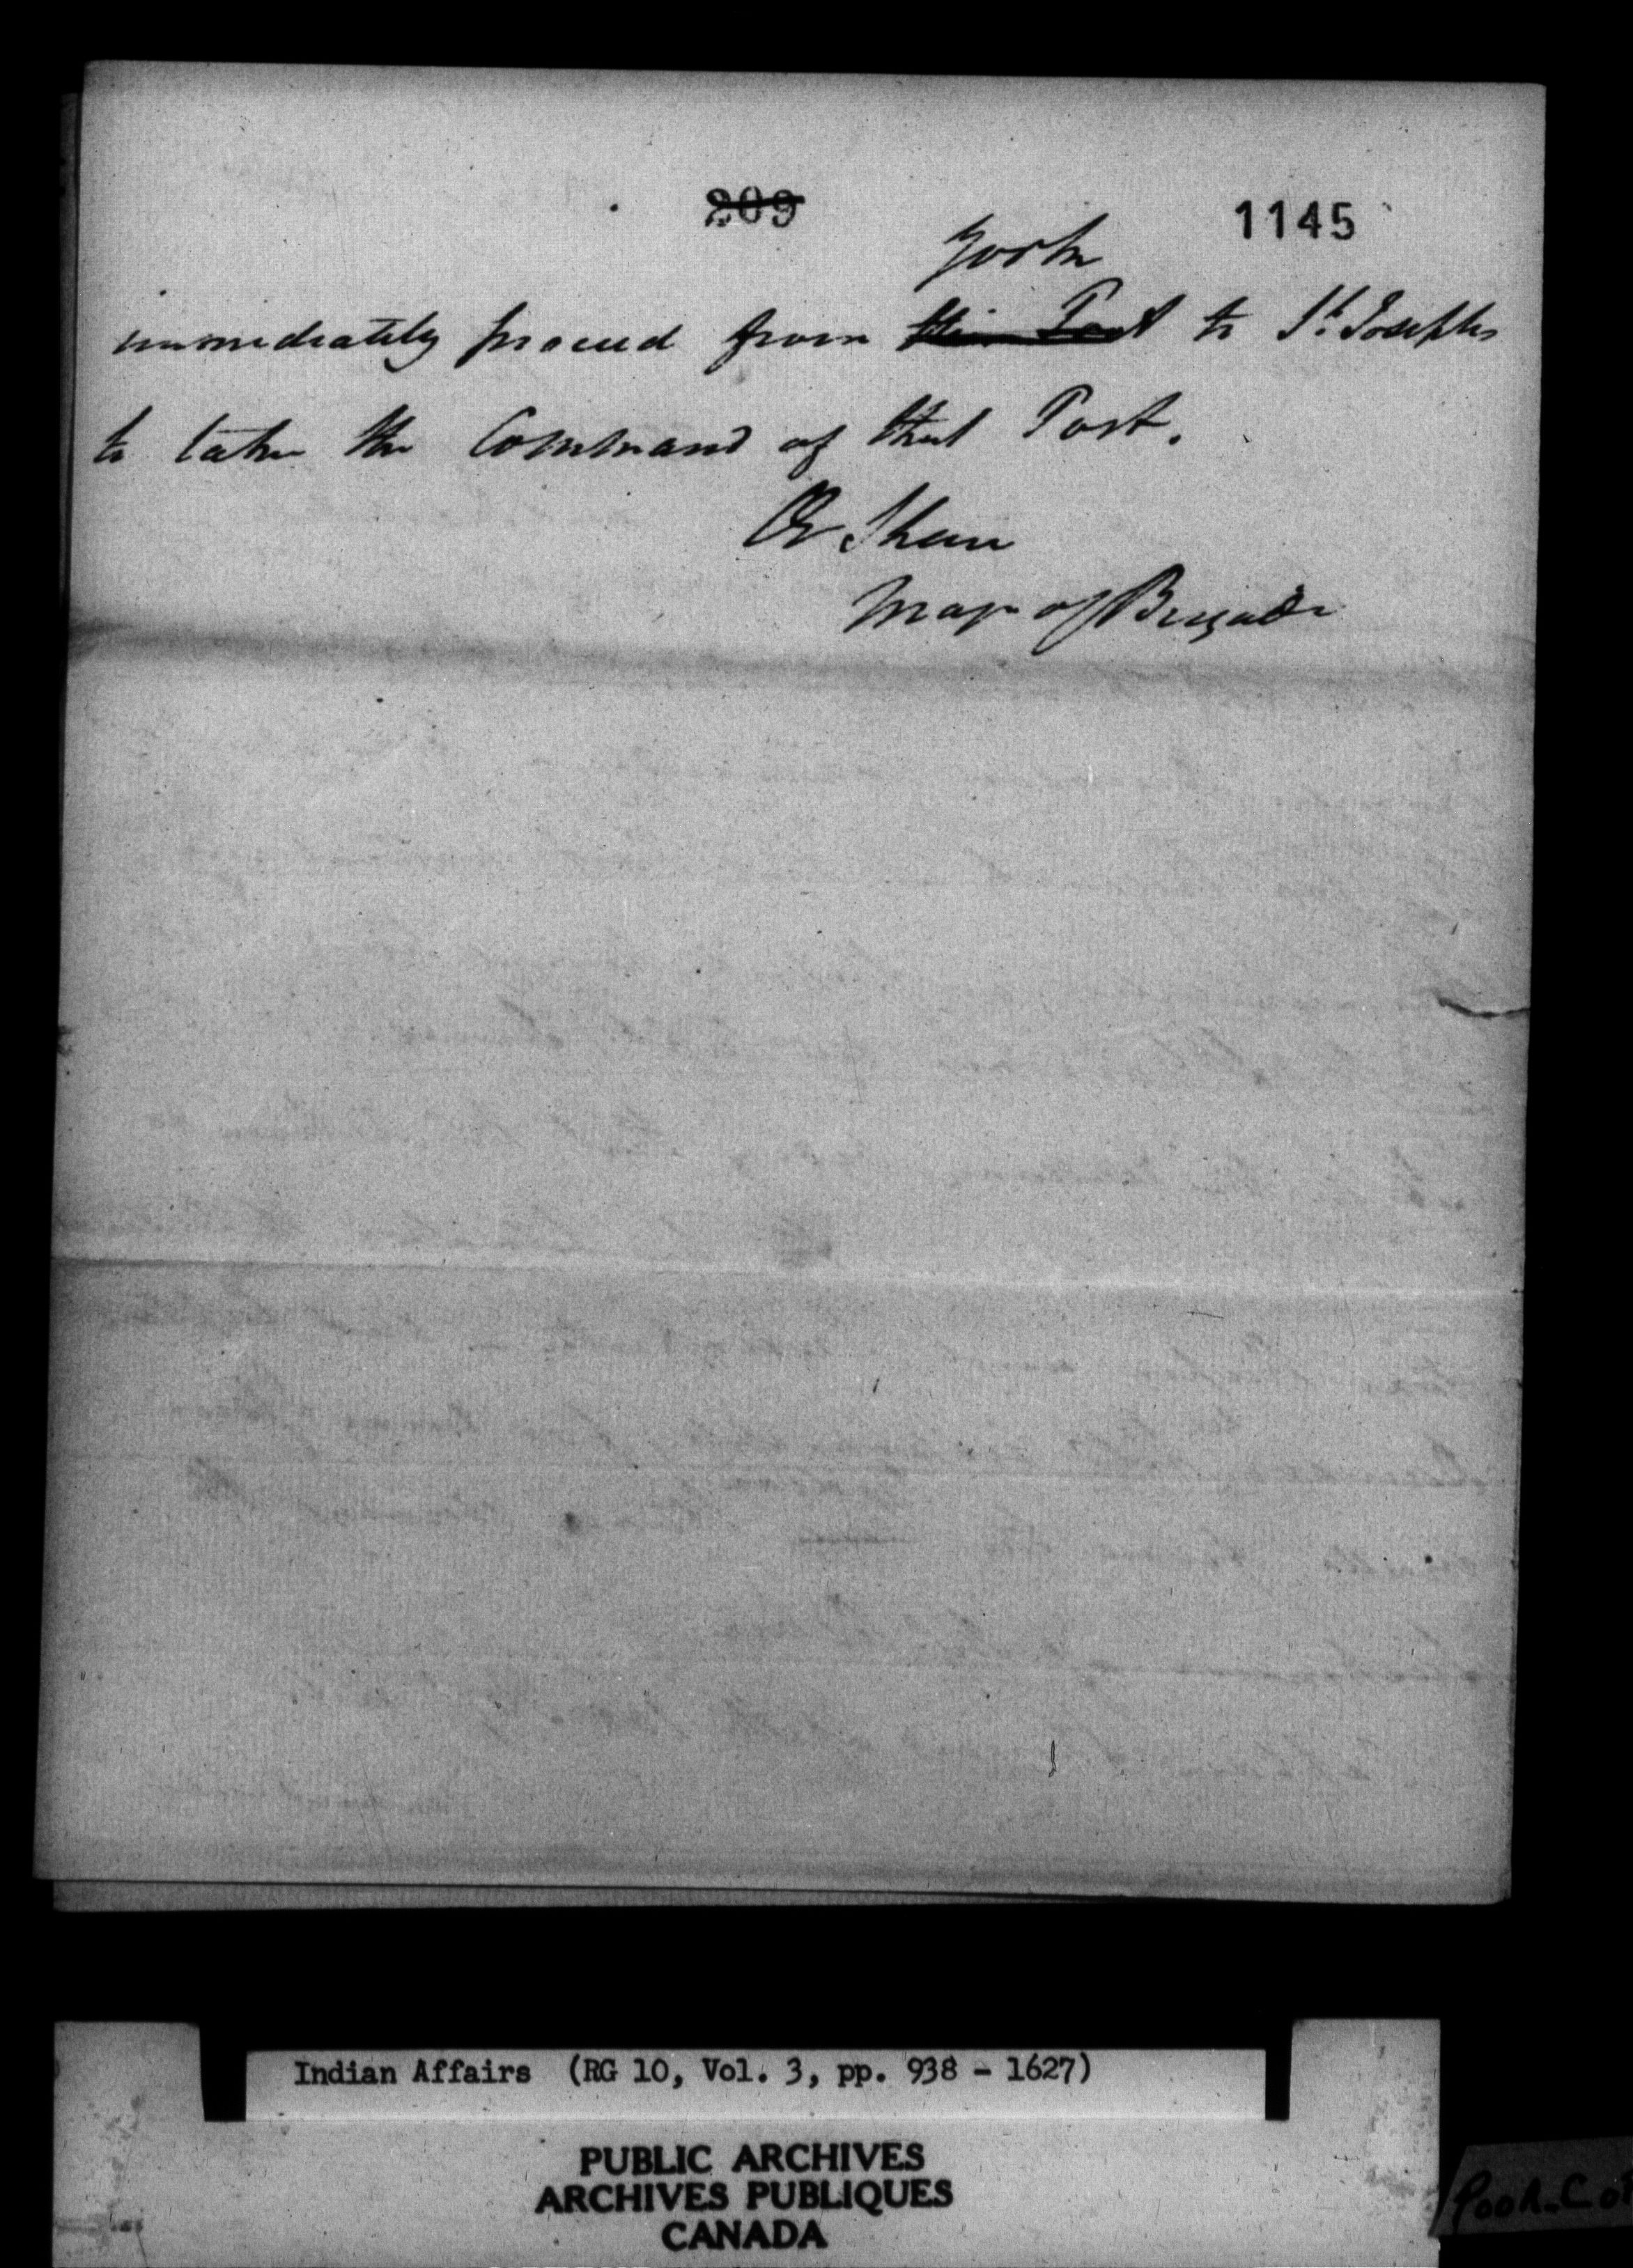 209
1145
York
immediately proceed from this Post to St. Josephs
to take the Command of that Post.
Æ Shaw
Major of Brigade
Indian Affairs (RG 10, Vol. 3, pp. 938 - 1627)
PUBLIC ARCHIVES
ARCHIVES PUBLIQUES
CANADA